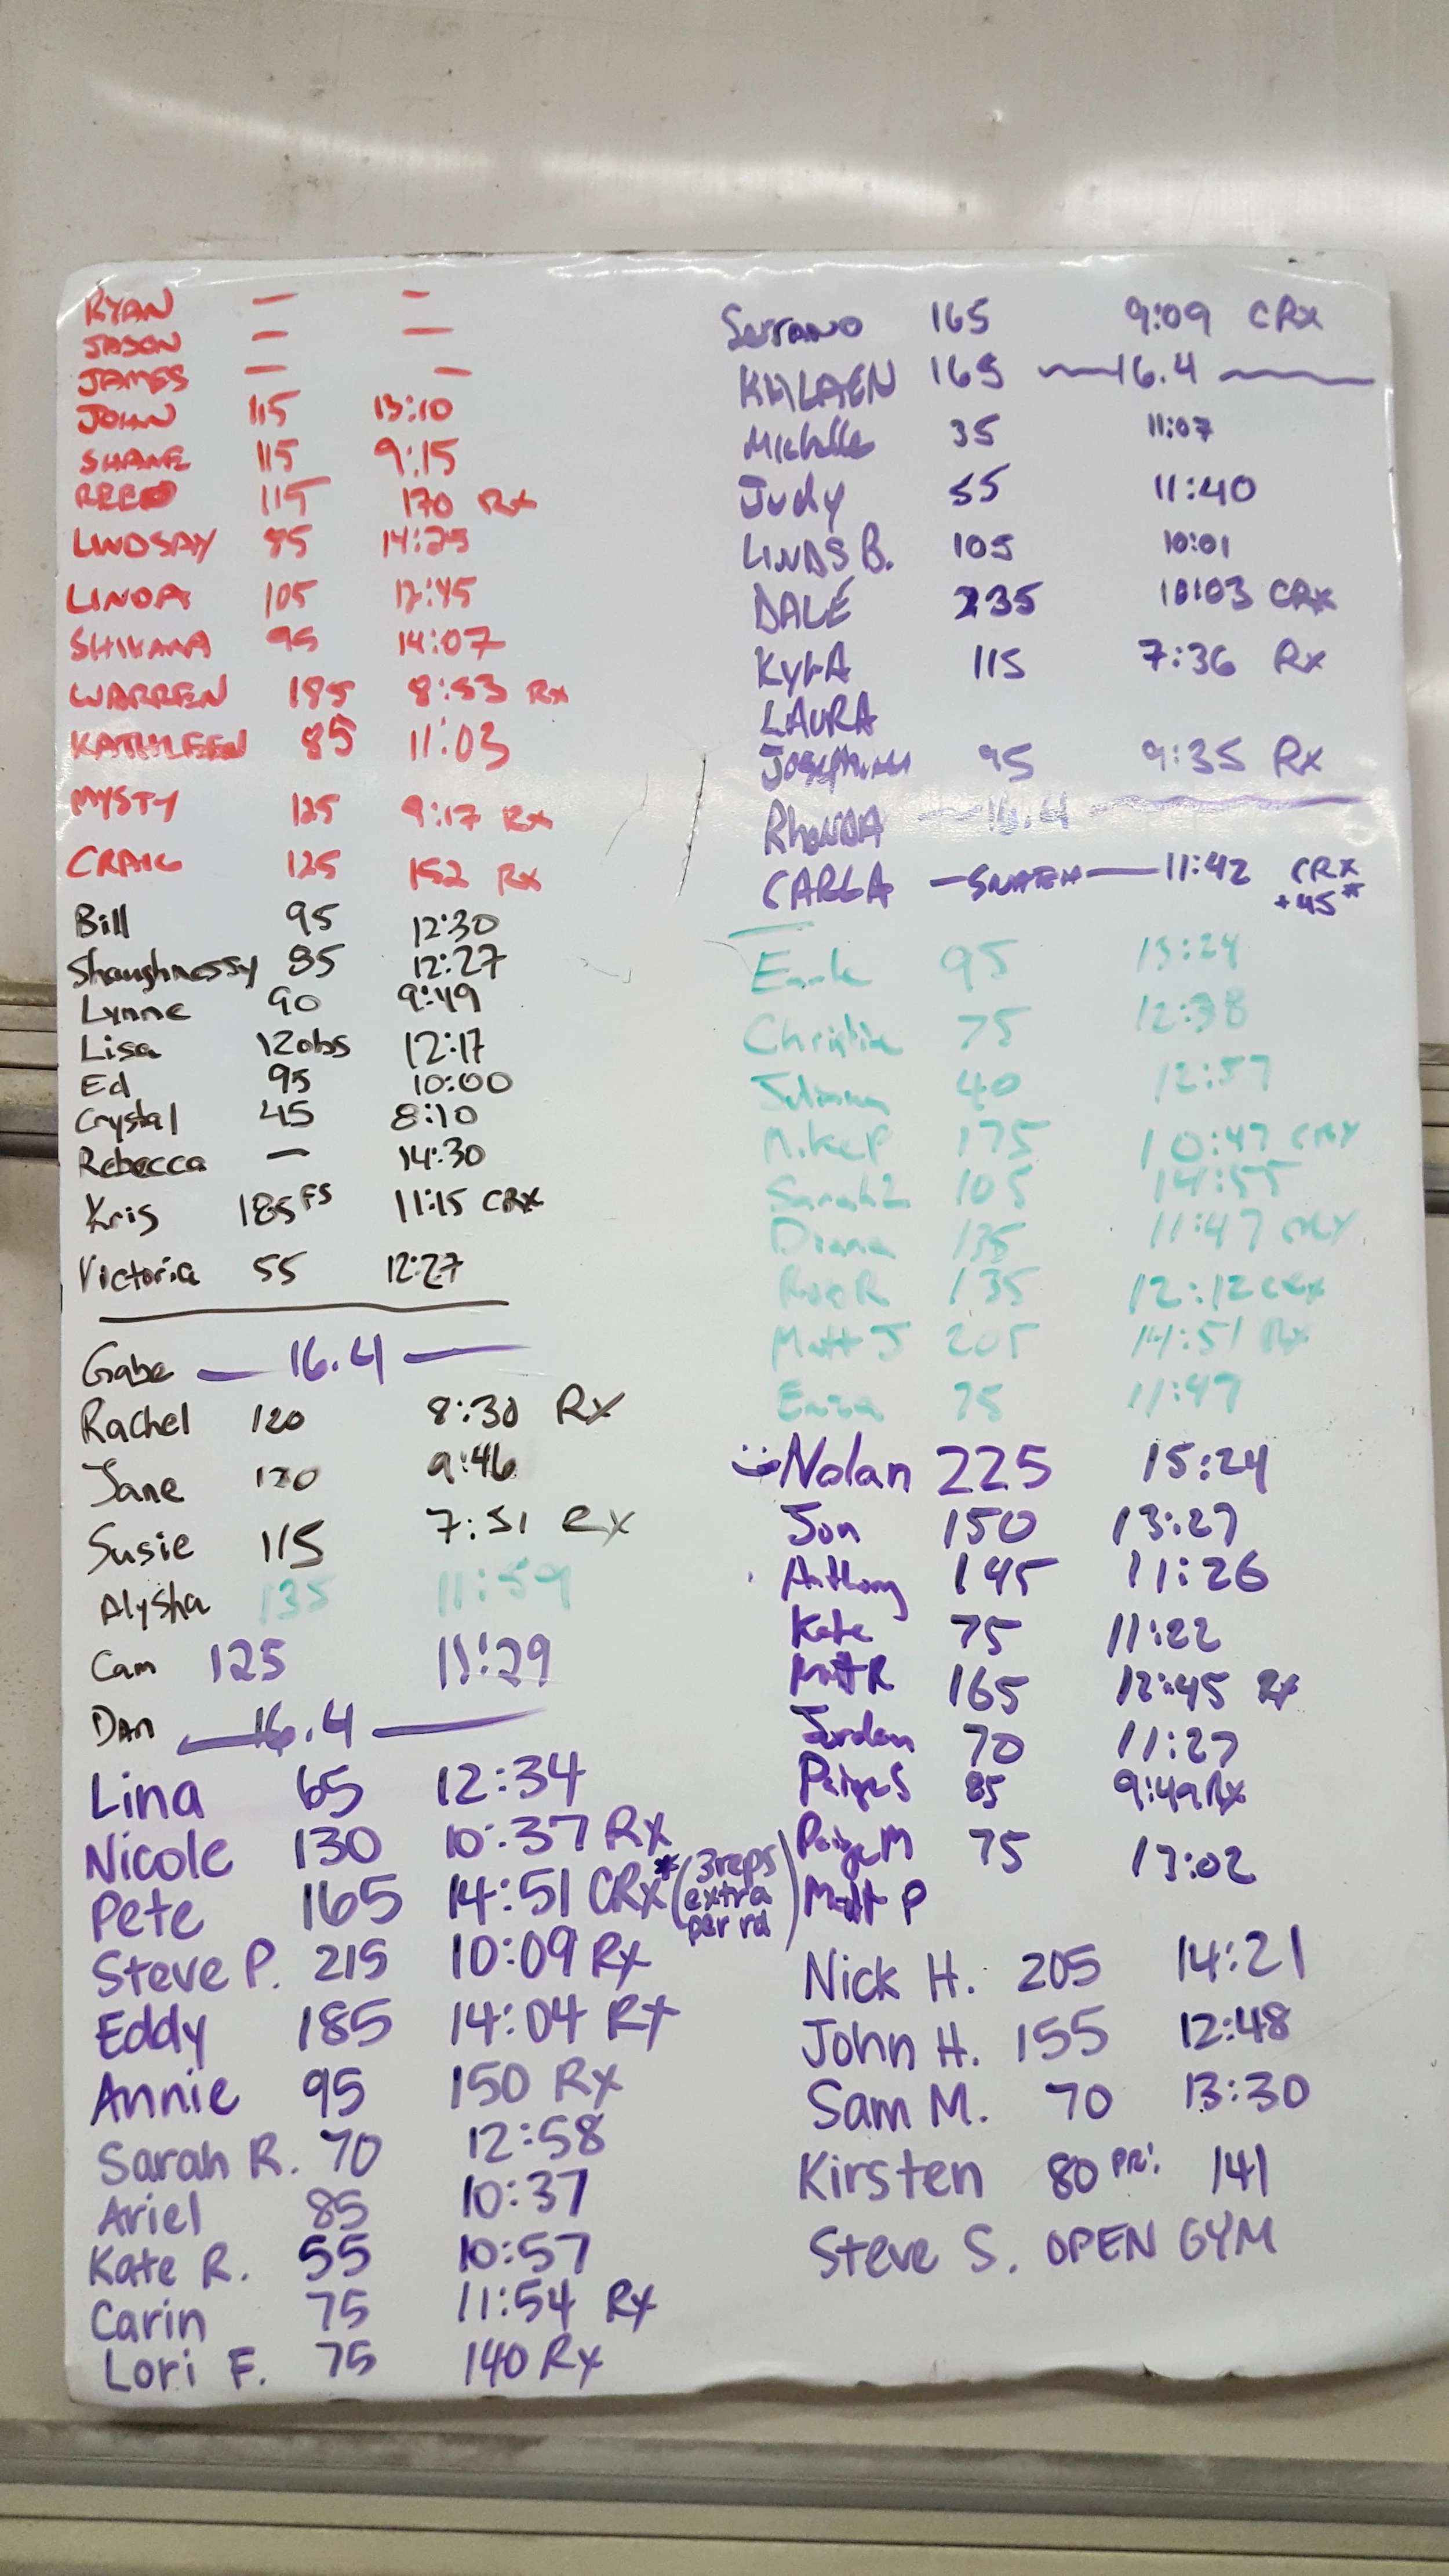 RYAN — —
JASON — —
JAMES — —
JOHN 115 13:10
SHANE 115 9:15
REED 115 170 Rx
LINDSAY 95 14:25
LINDA 105 12:45
SHIVANA 95 14:07
WARREN 185 8:53 Rx
KATHLEEN 85 11:03
MYSTY 125 9:17 Rx
CRAIG 125 152 Rx
Bill 95 12:30
Shaughnessy 85 12:27
Lynne 90 9:49
Lisa 120bs 12:17
Ed 95 10:00
Crystal 45 8:10
Rebecca — 14:30
Kris 185FS 11:15 CRX
Victoria 55 12:27
Gabe — 16.4 —
Rachel 120 8:30 Rx
Jane 120 9:46
Susie 115 7:51 Rx
Alysha 135 11:59
Cam 125 11:29
Dan — 16.4 —
Lina 65 12:34
Nicole 130 10:37 Rx
Pete 165 14:51 CRx* (3 reps extra per rd)
Steve P. 215 10:09 Rx
Eddy 185 14:04 Rx
Annie 95 150 Rx
Sarah R. 70 12:58
Ariel 85 10:37
Kate R. 55 10:57
Carin 75 11:54 Rx
Lori F. 75 140 Rx
Serrano 165 9:09 CRx
165 — 16.4 —
Michelle 35 11:07
Judy 55 11:40
LINDS B. 105 10:01
DALE 235 10:03 CRx
KYLA 115 7:36 Rx
LAURA
Josephine 95 9:35 Rx
RhONDA — 16.4 —
CARLA — SNATCH — 11:42 CRX
+45*
95 13:24
Christine 75 12:38
40 12:57
Mike P 175 10:47 CRX
Sarah L 105 14:55
Diana 135 11:47 CRX
Rob R 135 12:12 CRX
Matt J 205 14:51 Rx
Enza 75 11:47
Nolan 225 15:24
Jon 150 13:27
Anthony 145 11:26
Kate 75 11:22
Matt R 165 12:45 Rx
Jordan 70 11:27
Paige S 85 9:49 Rx
Paige M 75 13:02
Matt P
Nick H. 205 14:21
John H. 155 12:48
Sam M. 70 13:30
Kirsten 80 PR! 141
Steve S. OPEN GYM